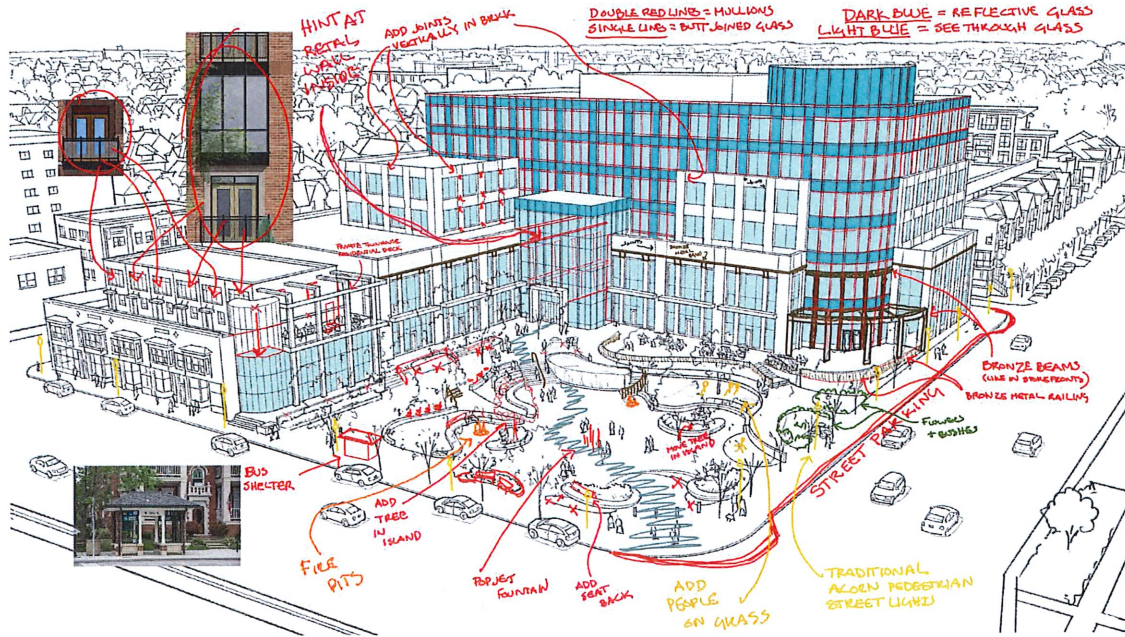 HINT AT
RETAIL
WALL
INSIDE
ADD JOINTS
VERTICALLY IN BRICK
DOUBLE RED LINES = MULLIONS
SINGLE LINES = BUTT JOINED GLASS
DARK BLUE = REFLECTIVE GLASS
LIGHT BLUE = SEE THROUGH GLASS
PRIVATE TOWNHOUSE
RESIDENTIAL DECK
JOINTS
BRONZE BEAMS
(LIKE IN STOREFRONTS)
BRONZE METAL RAILING
FLOWERS
+ BUSHES
STREET PARKING
MORE TREE
IN ISLAND
BUS
SHELTER
ADD
TREE
IN
ISLAND
FIRE
PITS
POP JET
FOUNTAIN
ADD
SEAT
BACK
ADD
PEOPLE
ON GRASS
TRADITIONAL
ACORN PEDESTRIAN
STREET LIGHTS